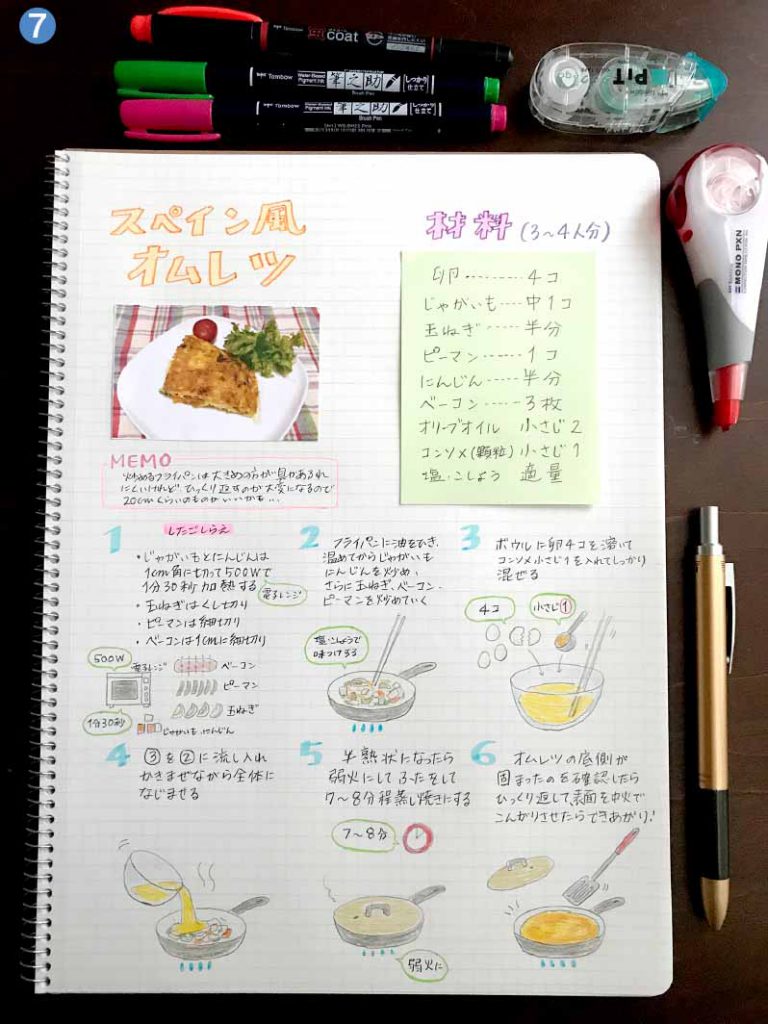 7
coat
Tombow Water-Based Pigment Ink 筆之助 しっかり仕立て
Brush Pen
Tombow Water-Based Pigment Ink 筆之助 しっかり仕立て
Brush Pen
PiT
MONO PXN
スペイン風
オムレツ
材料 (3〜4人分)
卵‥‥‥‥4コ
じゃがいも‥‥中1コ
玉ねぎ‥‥‥半分
ピーマン‥‥‥1コ
にんじん‥‥‥半分
ベーコン‥‥‥3枚
オリーブオイル 小さじ2
コンソメ(顆粒) 小さじ1
塩・こしょう 適量
MEMO
炒めるフライパンは大きめの方が具があふれ
にくいけれど、ひっくり返すのが大変になるので
20cmくらいのものがいいかも…
1 したごしらえ
・じゃがいもとにんじんは
1cm角に切って500Wで
1分30秒加熱する
電子レンジ
・玉ねぎはくし切り
・ピーマンは細切り
・ベーコンは1cmに細切り
500W
電子レンジ
1分30秒
ベーコン
ピーマン
玉ねぎ
じゃがいも、にんじん
2 フライパンに油をひき、
温めてからじゃがいも
にんじんを炒め、
さらに玉ねぎ、ベーコン・
ピーマンを炒めていく
塩・こしょうで
味つけする
3 ボウルに卵4コを溶いて
コンソメ小さじ1を入れてしっかり
混ぜる
4コ
小さじ①
4 ③を②に流し入れ
かきまぜながら全体に
なじませる
5 半熟状になったら
弱火にしてふたをして
7〜8分程蒸し焼きにする
7〜8分
弱火に
6 オムレツの底側が
固まったのを確認したら
ひっくり返して、表面を中火で
こんがりさせたらできあがり!